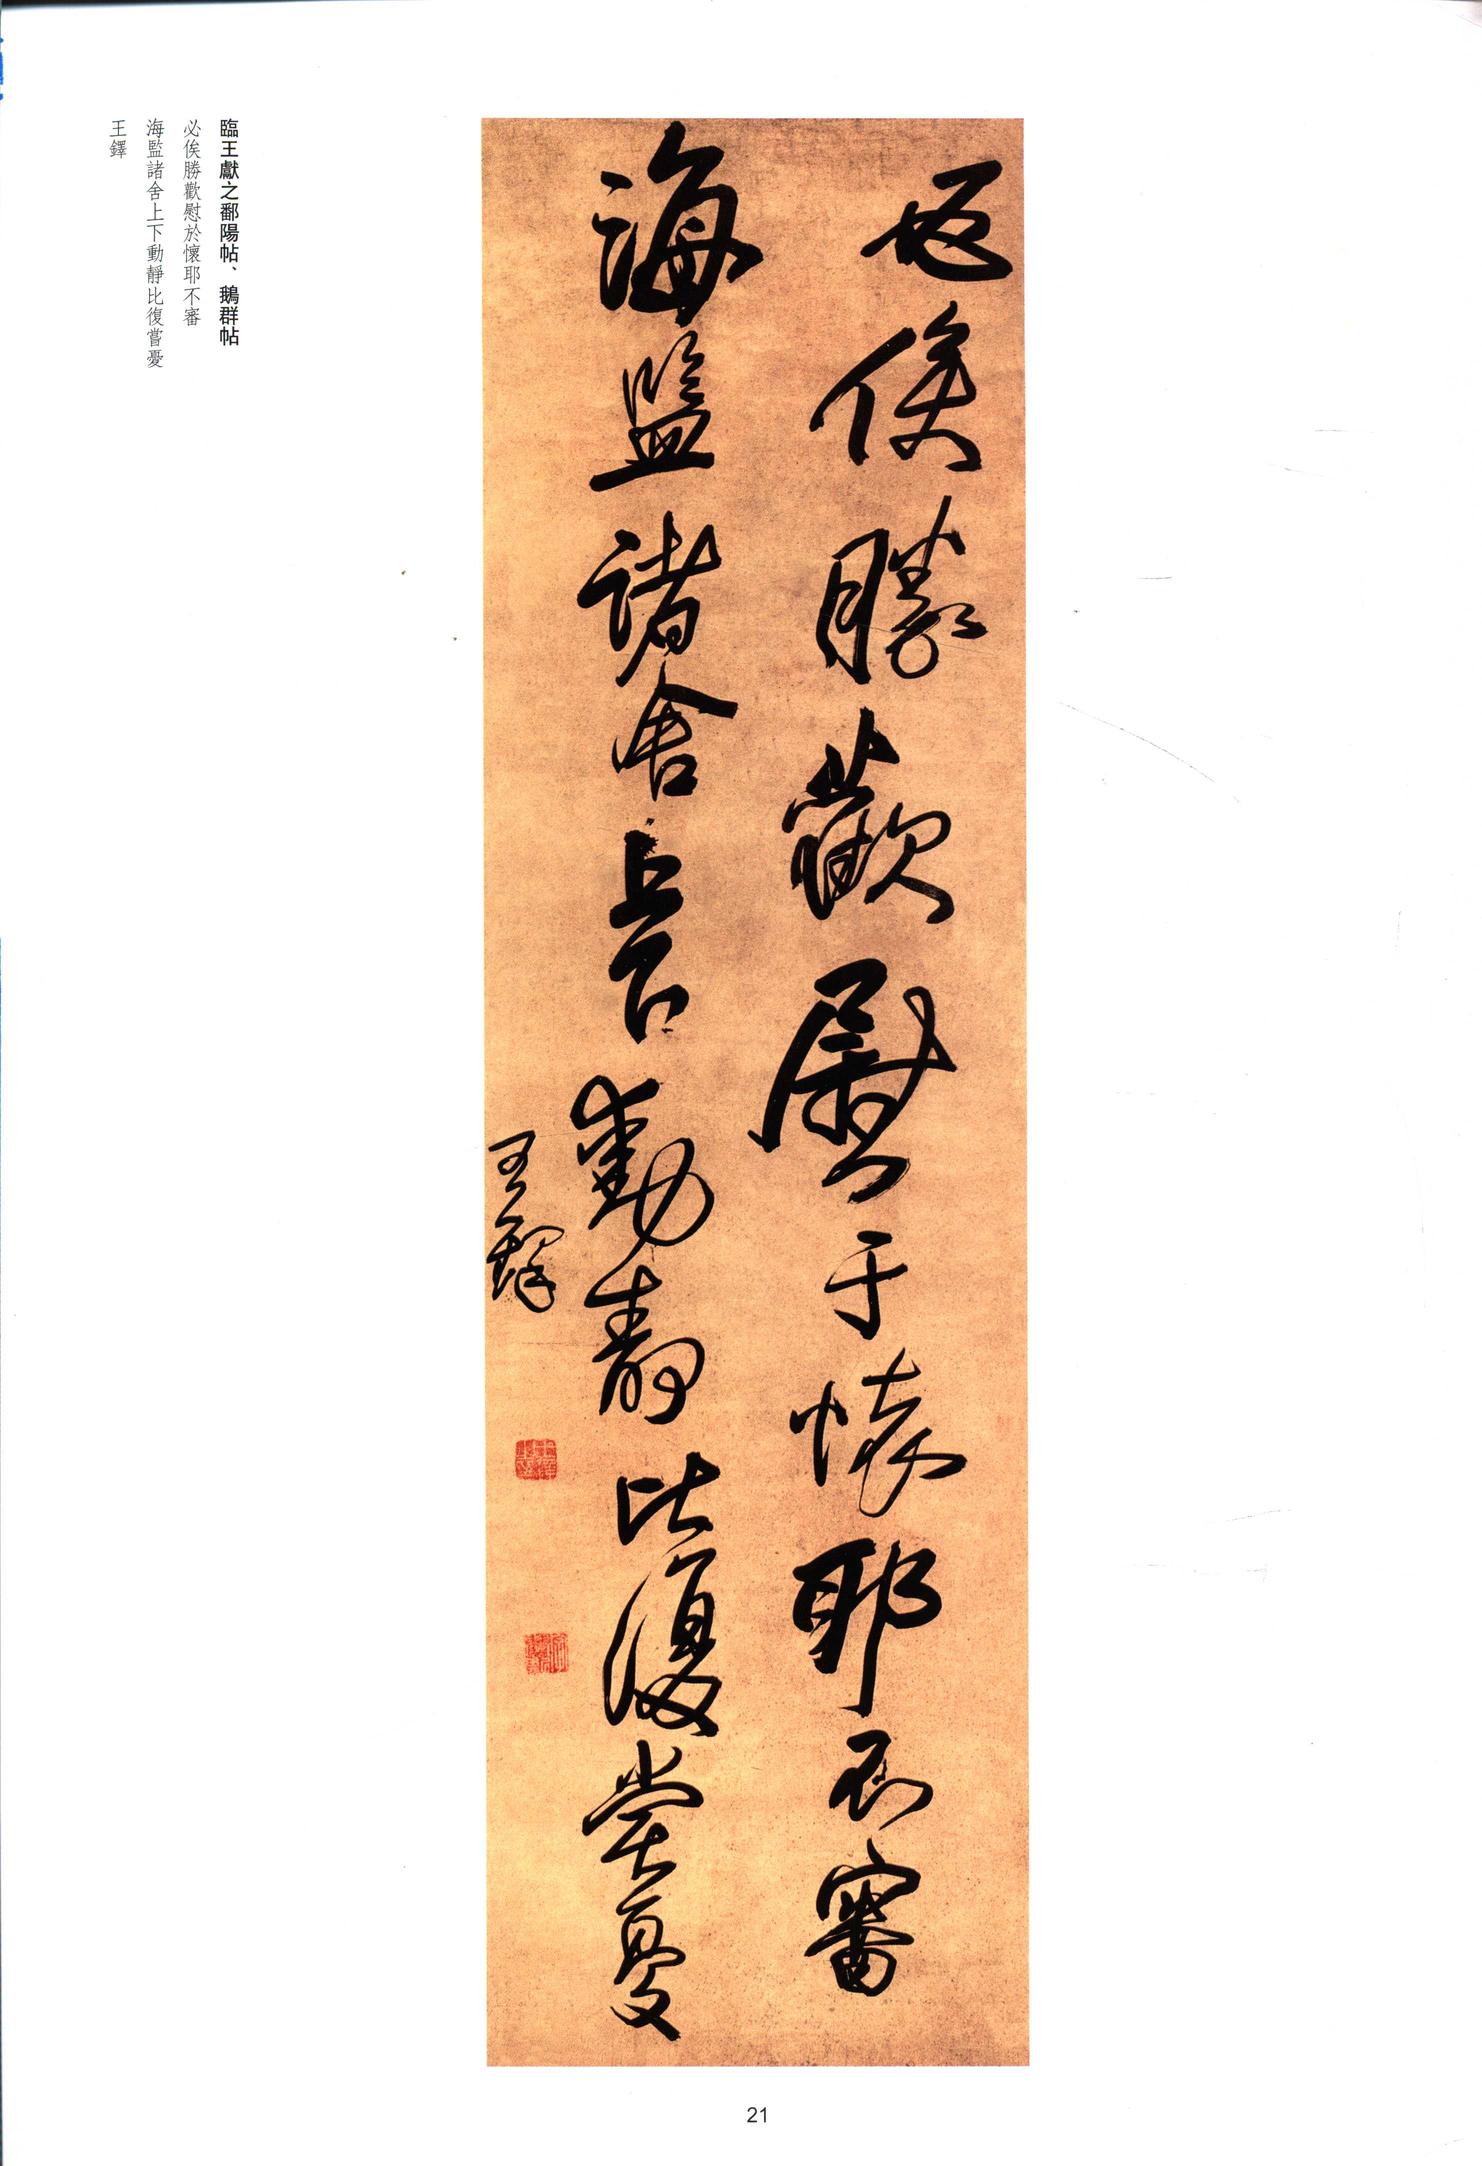 必俟勝歡慰于懷耶不審
海監諸舍上下動靜比復嘗憂
王鐸
臨王獻之鄱陽帖、鵝群帖
必俟勝歡慰於懷耶不審
海監諸舍上下動靜比復嘗憂
王鐸
21